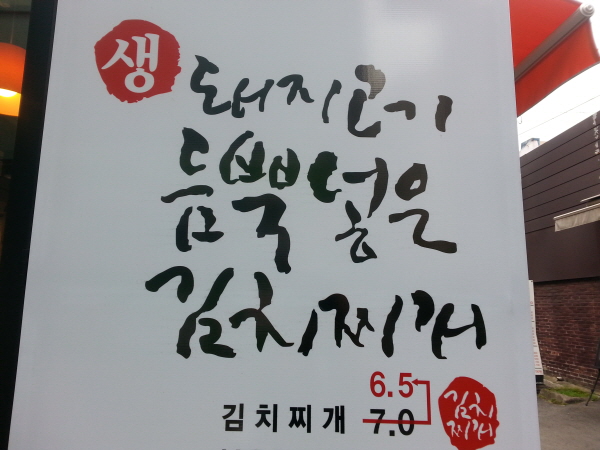 생 돼지고기
듬뿍 넣은
김치찌개
6.5
김치찌개 7.0
김치
찌개